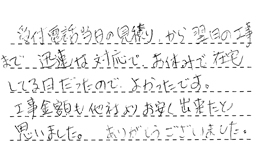 受付電話当日の見積り から 翌日の工事
まで 迅速な対応で、お休みで 在宅
してる日だったので、よかったです。
工事金額も他社よりお安く出来たと
思いました。 ありがとうございました。